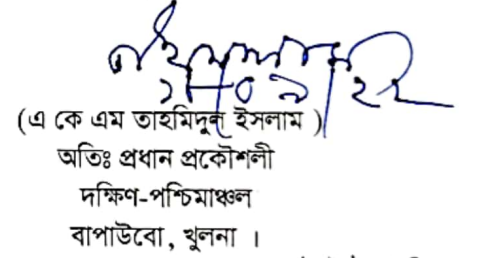 (এ কে এম তাহমিদুল ইসলাম )
অতিঃ প্রধান প্রকৌশলী
দক্ষিণ-পশ্চিমাঞ্চল
বাপাউবো, খুলনা ।